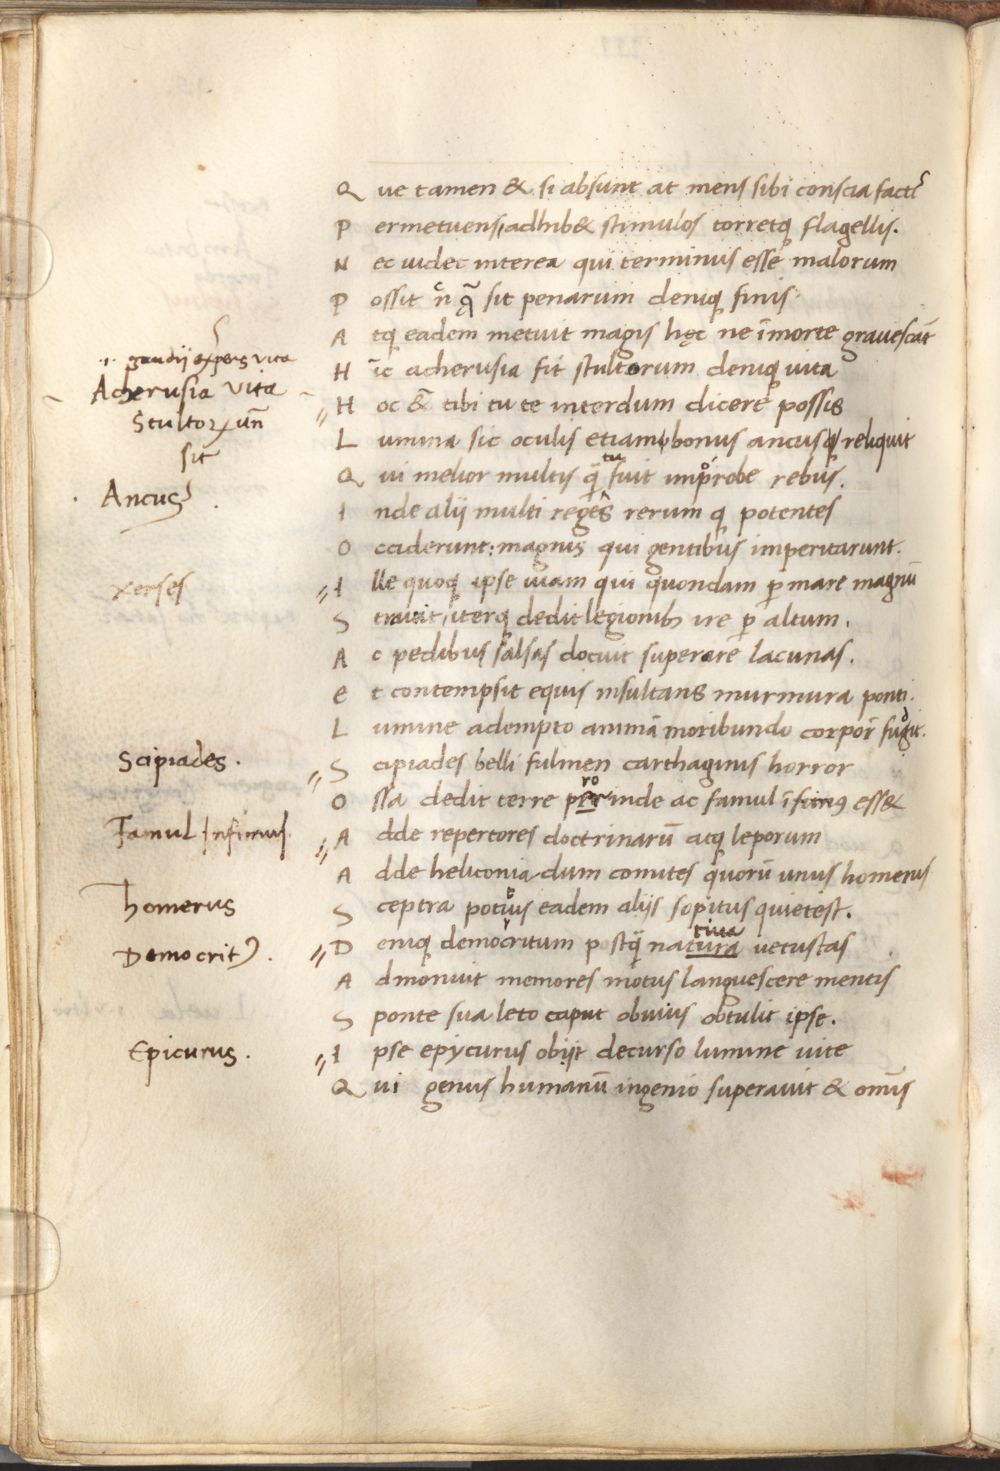 Q ue tamen & si absunt at mens sibi conscia facti
P ermetuens, adhib& stimulos torretq flagellis.
N ec uidet interea qui terminus esse malorum
P ossit n q̄ sit penarum deniq finis
A tq eadem metuit magis hęc ne ī morte grauescāt
.i. gaudij expers vita
H īc acherusia fit stultorum deniq uita
Acherusia vita
H oc &̄ tibi tu te interdum dicere possis
Stultorꝝ un̄
L umina sic oculis etiam bonus ancus reliquit
sit
Q ui melior multis q̄ tu fuit improbe rebus.
Ancus
I nde alij multi reges rerum q potentes
O cciderunt: magnis qui gentibus imperitarunt.
xerses
I lle quoq ipse uiam qui quondam ꝑ mare magnū
S trauit, iterq dedit legionibꝫ ire ꝑ altum.
A c pedibus salsas docuit superare lacunas.
E t contempsit equis insultans murmura ponti.
L umine adempto animā moribundo corpore fugit.
Scipiades.
S cipiades belli fulmen carthaginis horror
ro
O ssa dedit terre perinde ac famul īfimꝰ ess&
Famul Infimus.
A dde repertores doctrinarū atq leporum
A dde heliconiadum comites quorū unus homerus
Homerus
S ceptra potius eadem alijs sopitus quietest.
tiua
Democritꝰ.
D eniq democritum postq̄ natura uetustas
A dmonuit memores motus languescere mentis
S ponte sua leto caput obuius obtulit ipse.
Epicurus.
I pse epycurus obijt decurso lumine uite
Q ui genus humanū ingenio superauit & omīs